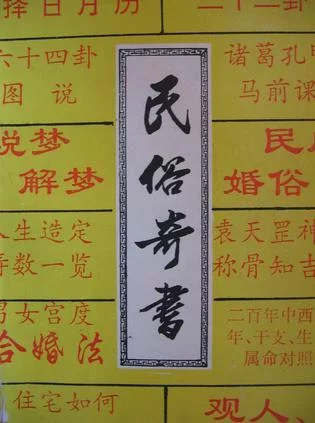 择日月历
六十四卦
图说
说梦
解梦
人生造定
寿数一览
男女宫度
合婚法
住宅如何
民俗奇书
二十二卦
诸葛孔明
马前课
民
婚俗
袁天罡神
称骨知吉
二百年中西
年、干支、生
属命对照
观人、